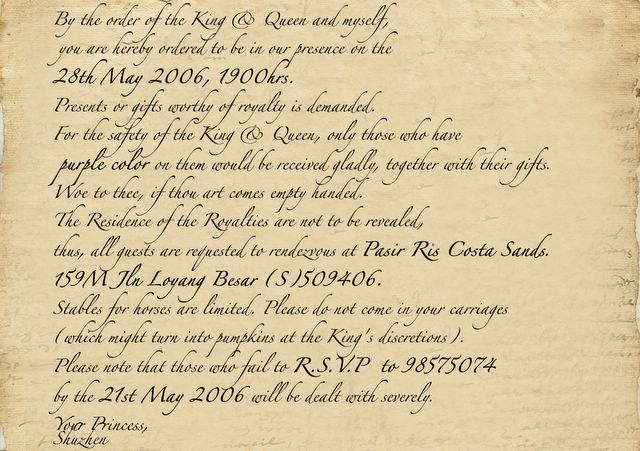 By the order of the King & Queen and myself,
you are hereby ordered to be in our presence on the
28th May 2006, 1900hrs.
Presents or gifts worthy of royalty is demanded.
For the safety of the King & Queen, only those who have
purple color on them would be received gladly, together with their gifts.
Woe to thee, if thou art comes empty handed.
The Residence of the Royalties are not to be revealed,
thus, all guests are requested to rendezvous at Pasir Ris Costa Sands.
159M Jln Loyang Besar (S)509406.
Stables for horses are limited. Please do not come in your carriages
(which might turn into pumpkins at the King's discretions).
Please note that those who fail to R.S.V.P to 98575074
by the 21st May 2006 will be dealt with severely.
Your Princess,
Shuzhen